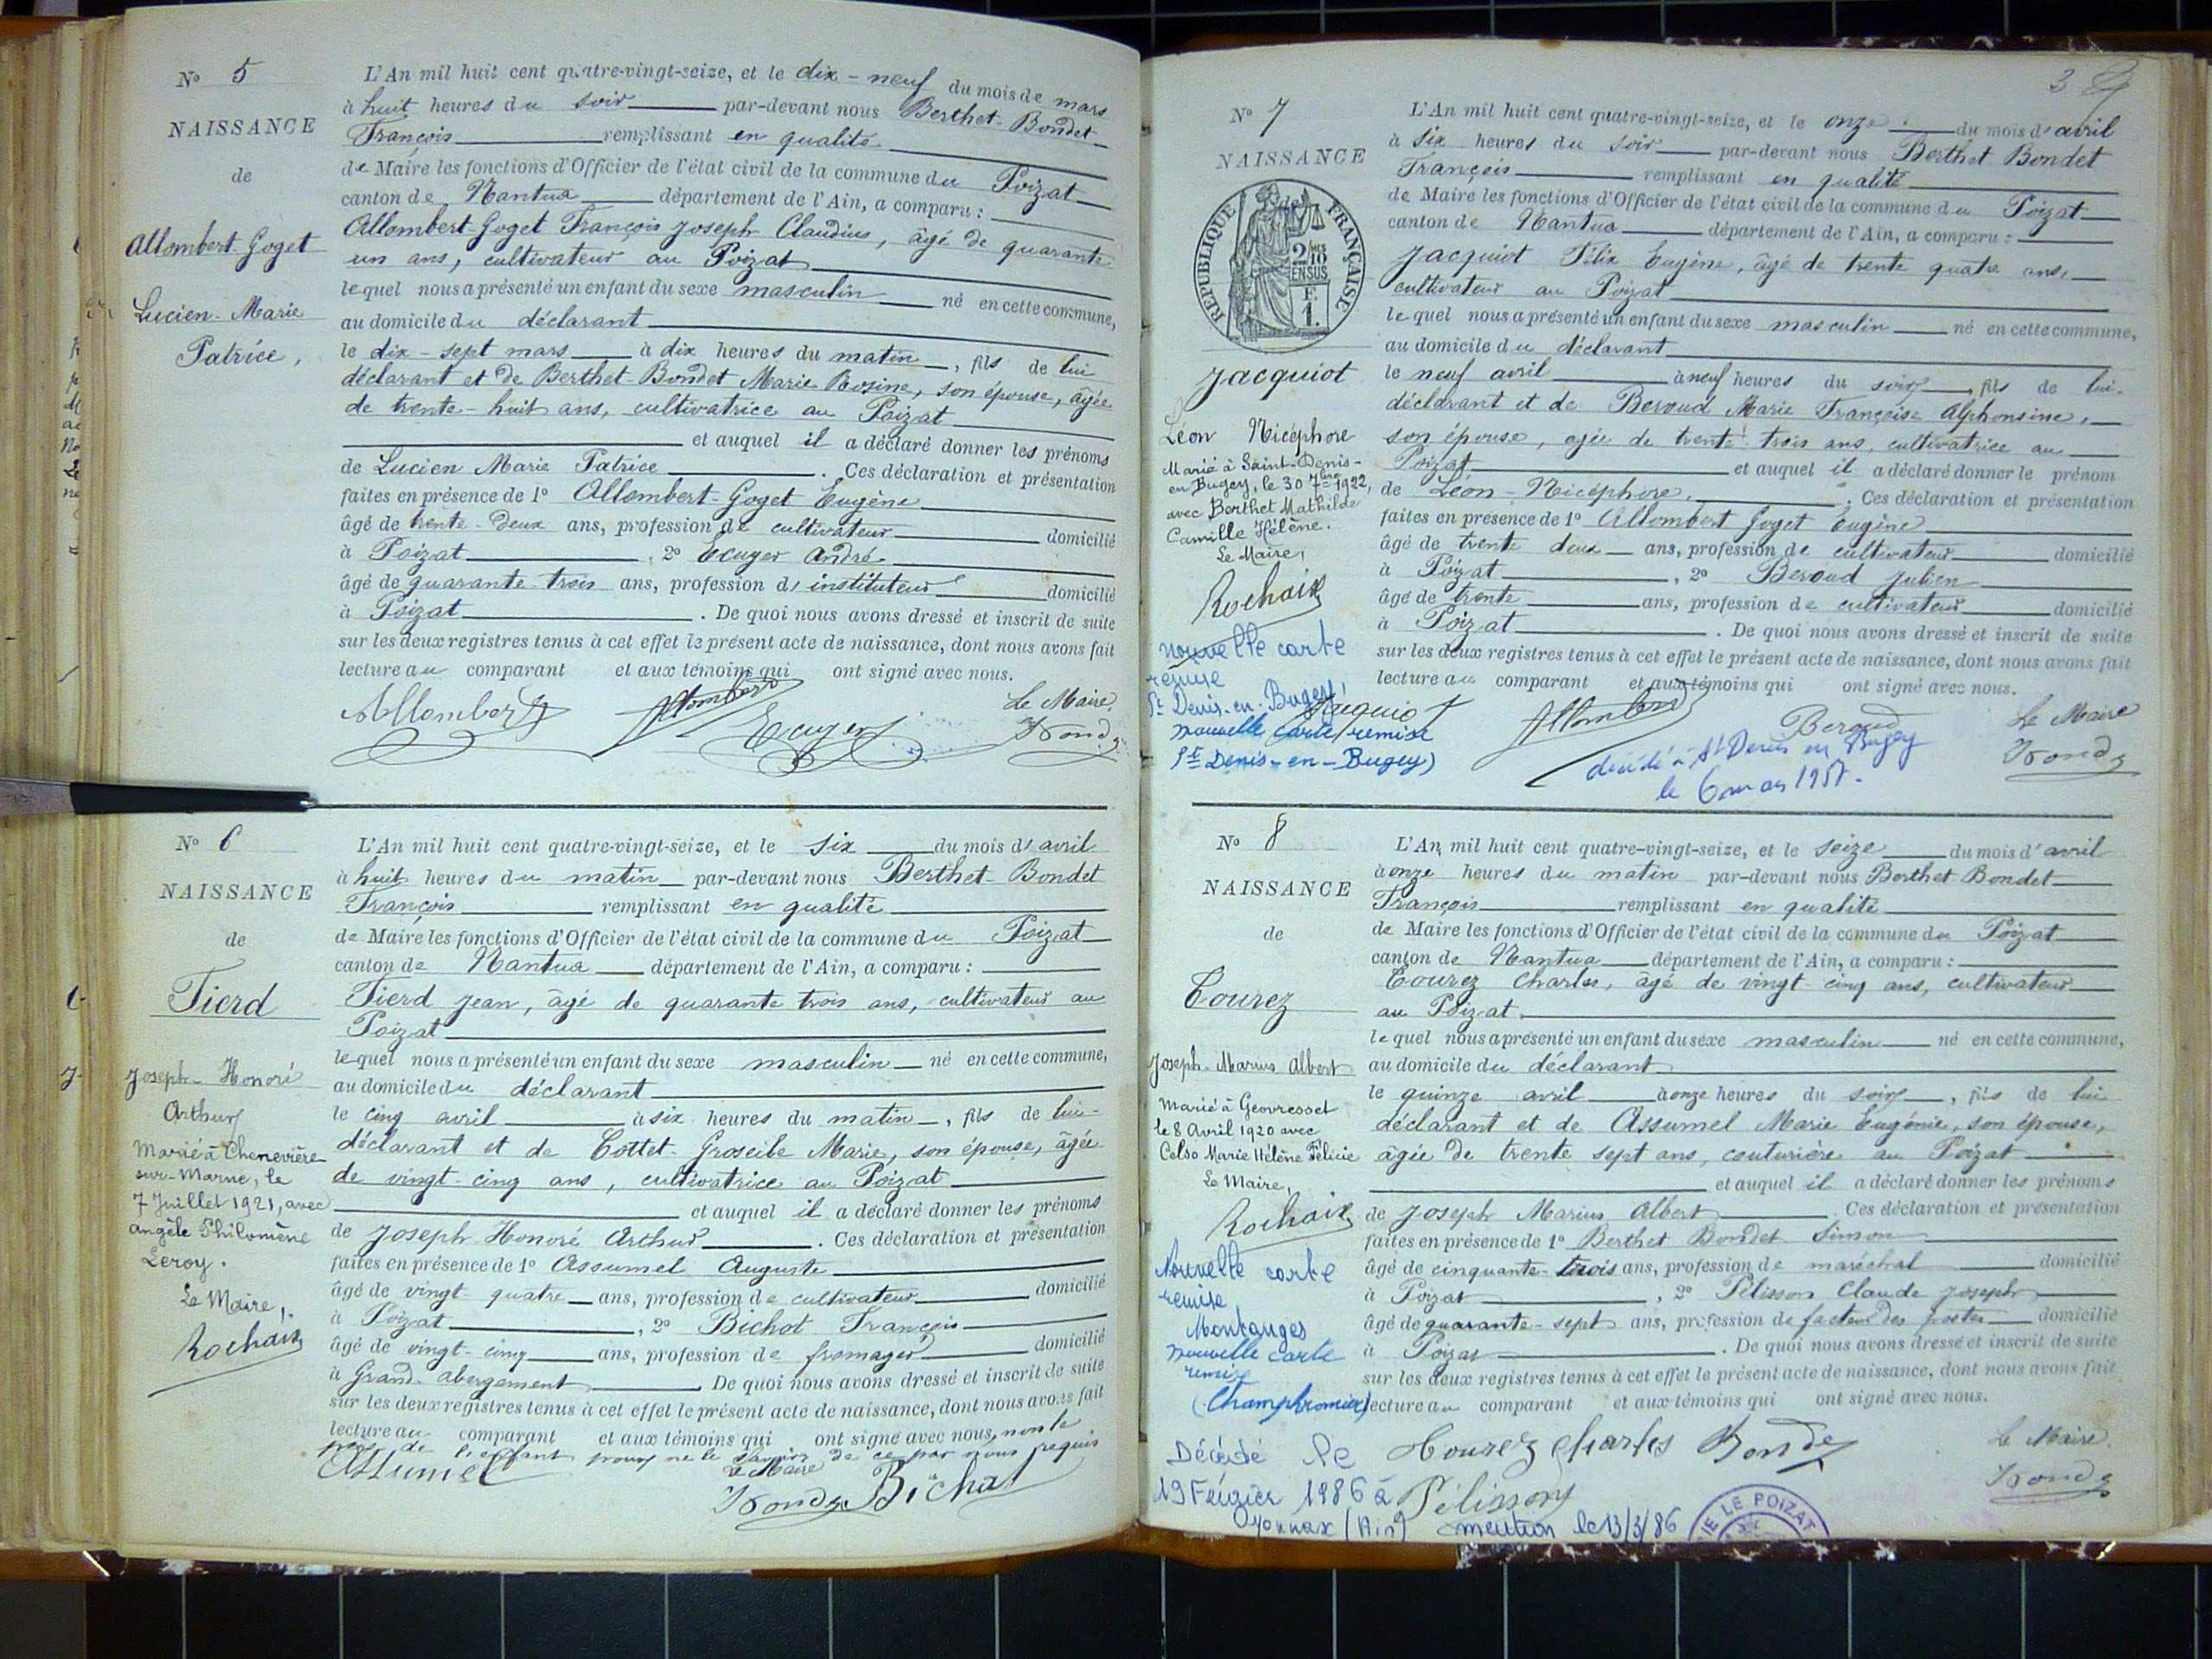 N° 5
NAISSANCE
de
Allombert Goget
Lucien Marie
Patrice,
L'An mil huit cent quatre-vingt-seize, et le dix-neuf du mois de mars
à huit heures du soir par-devant nous Berthet-Bondet
François remplissant en qualité
de Maire les fonctions d'Officier de l'état civil de la commune du Poizat
canton de Nantua département de l'Ain, a comparu :
Allombert Goget François Joseph Claudius, âgé de quarante
un ans, cultivateur au Poizat
lequel nous a présenté un enfant du sexe masculin né en cette commune,
au domicile du déclarant
le dix-sept mars à dix heures du matin, fils de lui
déclarant et de Berthet-Bondet Marie Rosine, son épouse, âgée
de trente-huit ans, cultivatrice au Poizat
et auquel il a déclaré donner les prénoms
de Lucien Marie Patrice . Ces déclaration et présentation
faites en présence de 1° Allombert-Goget Eugène
âgé de trente-deux ans, profession de cultivateur domicilié
à Poizat , 2° Ecuyer André
âgé de quarante trois ans, profession d' instituteur domicilié
à Poizat . De quoi nous avons dressé et inscrit de suite
sur les deux registres tenus à cet effet le présent acte de naissance, dont nous avons fait
lecture au comparant et aux témoins qui ont signé avec nous.
Allombert Allombert Ecuyer Le Maire,
Bondet
N° 6
NAISSANCE
de
Tierd
Joseph-Honoré
Arthur
Marié à Chenevière
sur-Marne, le
7 Juillet 1921, avec
Angèle Philomène
Leroy.
Le Maire,
Rochaix
L'An mil huit cent quatre-vingt-seize, et le six du mois d' avril
à huit heures du matin par-devant nous Berthet-Bondet
François remplissant en qualité
de Maire les fonctions d'Officier de l'état civil de la commune du Poizat
canton de Nantua département de l'Ain, a comparu :
Tierd Jean, âgé de quarante trois ans, cultivateur au
Poizat
lequel nous a présenté un enfant du sexe masculin né en cette commune,
au domicile du déclarant
le cinq avril à six heures du matin, fils de lui-
déclarant et de Cottet-Groseile Marie, son épouse, âgée
de vingt-cinq ans, cultivatrice au Poizat
et auquel il a déclaré donner les prénoms
de Joseph Honoré Arthur . Ces déclaration et présentation
faites en présence de 1° Assumel Auguste
âgé de vingt-quatre ans, profession de cultivateur domicilié
à Poizat , 2° Bichot François
âgé de vingt-cinq ans, profession de fromager domicilié
à Grand-abergement . De quoi nous avons dressé et inscrit de suite
sur les deux registres tenus à cet effet le présent acte de naissance, dont nous avons fait
lecture au comparant et aux témoins qui ont signé avec nous, non le
père de l'enfant pour ne le savoir de ce par nous requis
Assumel Le Maire
Bondet Bichat
3
N° 7
NAISSANCE
RÉPUBLIQUE FRANÇAISE
2/10 EN SUS
F. 1.
Jacquiot
Léon Nicéphore
Marié à Saint-Denis-
en Bugey, le 30 7bre 1922,
avec Berthet Mathilde
Camille Hélène.
Le Maire,
Rochaix
nouvelle carte
remise
St Denis-en-Bugey,
nouvelle carte remise
St Denis-en-Bugey)
L'An mil huit cent quatre-vingt-seize, et le onze du mois d' avril
à six heures du soir par-devant nous Berthet Bondet
François remplissant en qualité
de Maire les fonctions d'Officier de l'état civil de la commune du Poizat
canton de Nantua département de l'Ain, a comparu :
Jacquiot Félix Eugène, âgé de trente quatre ans,
cultivateur au Poizat
lequel nous a présenté un enfant du sexe masculin né en cette commune,
au domicile du déclarant
le neuf avril à neuf heures du soir, fils de lui-
déclarant et de Beroud Marie Françoise Alphonsine,
son épouse, agée de trente trois ans, cultivatrice au
Poizat et auquel il a déclaré donner le prénom
de Léon-Nicéphore. . Ces déclaration et présentation
faites en présence de 1° Allombert Goget Eugène
âgé de trente deux ans, profession de cultivateur domicilié
à Poizat , 2° Beroud Julien
âgé de trente ans, profession de cultivateur domicilié
à Poizat . De quoi nous avons dressé et inscrit de suite
sur les deux registres tenus à cet effet le présent acte de naissance, dont nous avons fait
lecture au comparant et aux témoins qui ont signé avec nous.
Jacquiot Allombert Beroud Le Maire
Bondet
décédé à St Denis en Bugey
le 6 mars
N° 8
NAISSANCE
de
Tourez
Joseph-Marius Albert
Marié à Geovresset
le 8 Avril 1920 avec
Celso Marie Hélène Félicie
Le Maire,
Rochaix
Nouvelle carte
remise
Montanges
nouvelle carte
remise
(Champfromier)
Décédé le
19 Février 1986 à
Oyonnax (Ain) mention le 13/3/86
L'An mil huit cent quatre-vingt-seize, et le seize du mois d' avril
à onze heures du matin par-devant nous Berthet Bondet
François remplissant en qualité
de Maire les fonctions d'Officier de l'état civil de la commune du Poizat
canton de Nantua département de l'Ain, a comparu :
Tourez Charles, âgé de vingt-cinq ans, cultivateur
au Poizat.
lequel nous a présenté un enfant du sexe masculin né en cette commune,
au domicile du déclarant
le quinze avril à onze heures du soir, fils de lui
déclarant et de Assumel Marie Eugénie, son épouse,
âgée de trente sept ans, couturière au Poizat
et auquel il a déclaré donner les prénoms
de Joseph Marius Albert . Ces déclaration et présentation
faites en présence de 1° Berthet Bondet Simon
âgé de cinquante-trois ans, profession de maréchal domicilié
à Poizat , 2° Pélisson Claude Joseph
âgé de quarante-sept ans, profession de facteur des postes domicilié
à Poizat . De quoi nous avons dressé et inscrit de suite
sur les deux registres tenus à cet effet le présent acte de naissance, dont nous avons fait
lecture au comparant et aux témoins qui ont signé avec nous.
Tourez Charles Bondet Le Maire
Pélisson Bondet
LE POIZAT